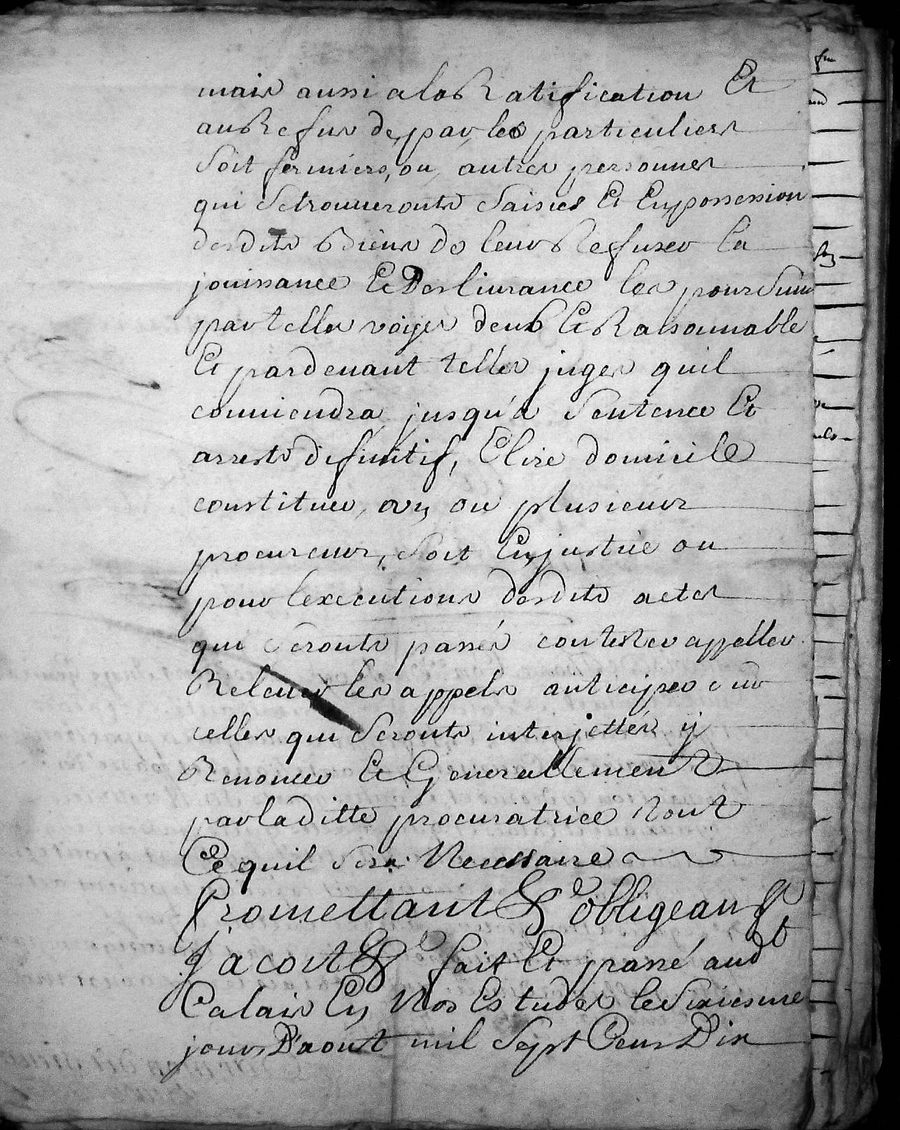 mais aussi a la Ratification Et
au Refus de, par, les particuliers
soit fermiers, ou, autres personnes
qui se trouueronts saisies Et En possession
desdits Biens de leur Refuser la
jouissance Et Desliurance les poursuiure
par telles voyes deub Et Raisonnable
Et pardeuant telles juges quil
conuiendra, jusqu'a Sentence Et
arrests difinitif, Elire domicile
constituer, ou plusieurs
procureurs, soit En justice ou
pour lexecutions desdits actes
qui seronts passés contester appeller
Releuer les appels anticiper sur
celles qui Seronts interjettés y
Renoncer Et Generallement
par laditte procuratrice tout
Ce quil sera Necessaire
Promettant & obligeant
jacoit & fait Et passé aud
Calais En Nos Estudes le Sixiesme
jour D'aout mil Sept Cens Dix